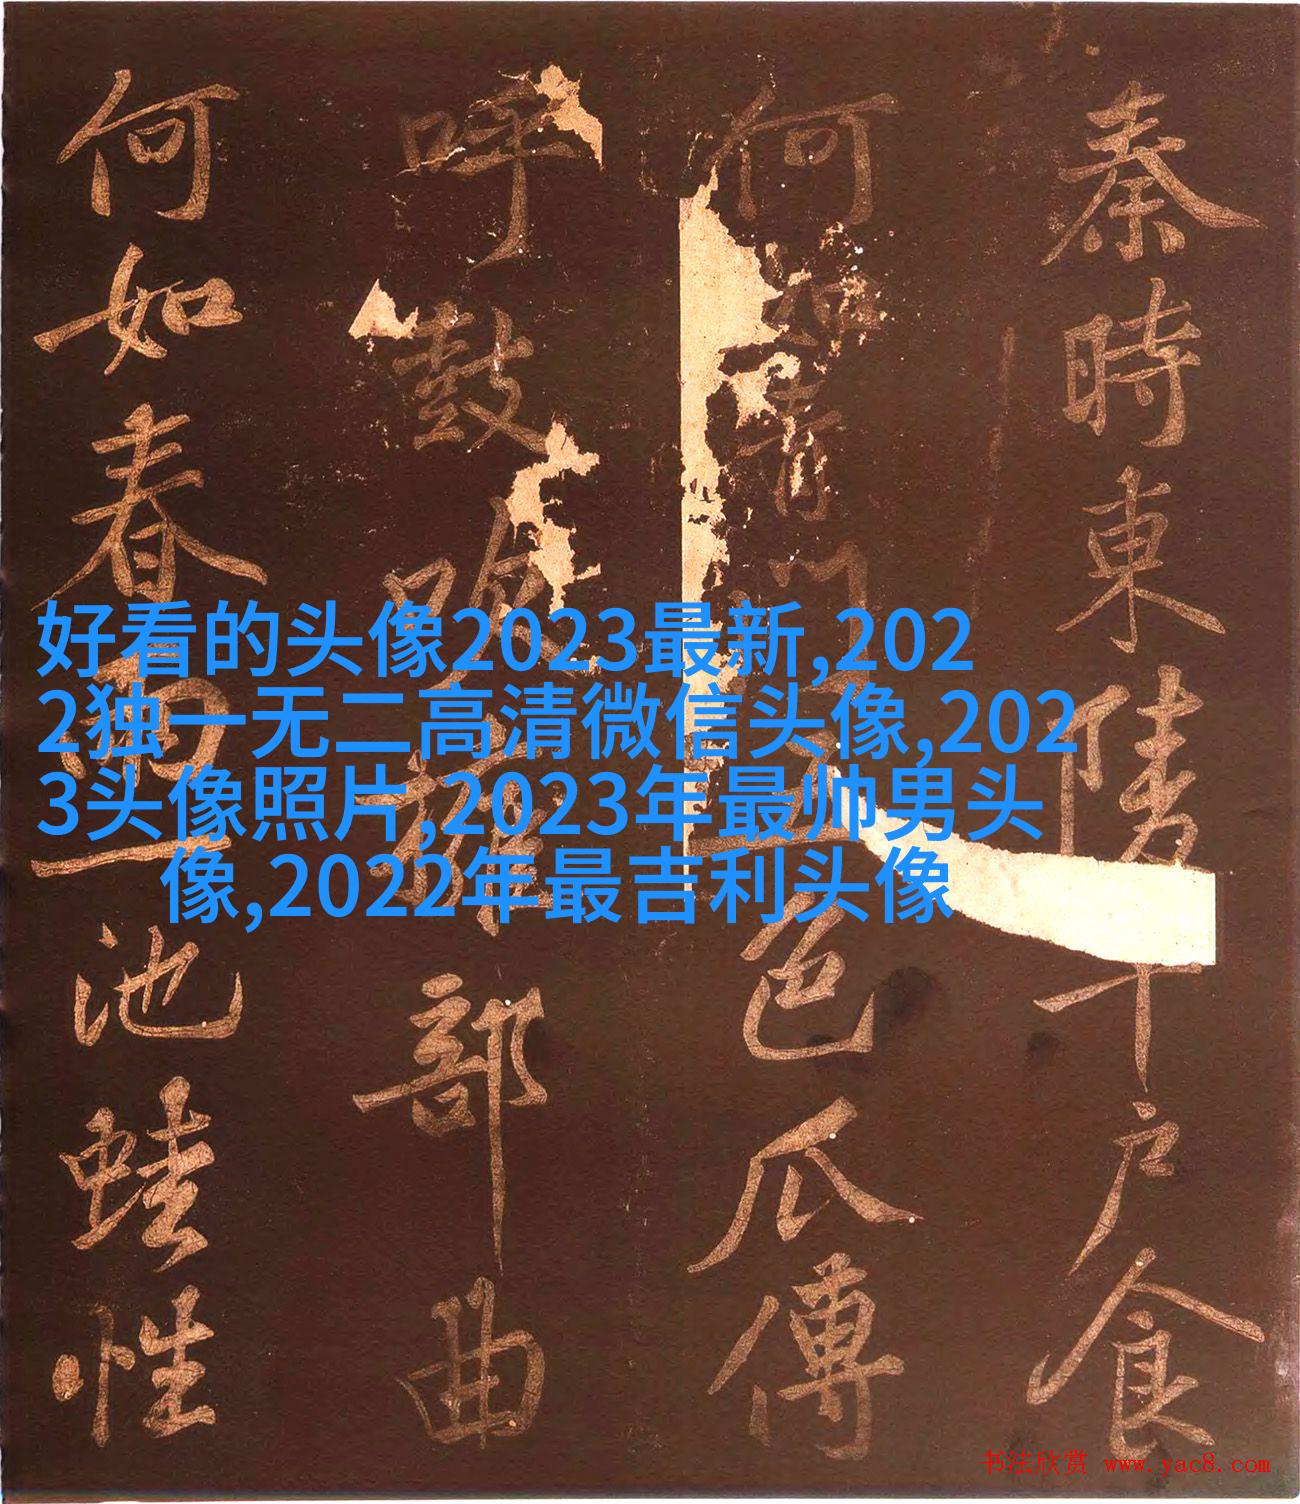 秦時東陵千戶食
何如青門五色瓜傳
呼鼓吹擁部曲
何如春雨一池蛙性
好看的头像2023最新,202
2独一无二高清微信头像,202
3头像照片,2023年最帅男头
像,2022年最吉利头像
书法欣赏 www.yac8.com